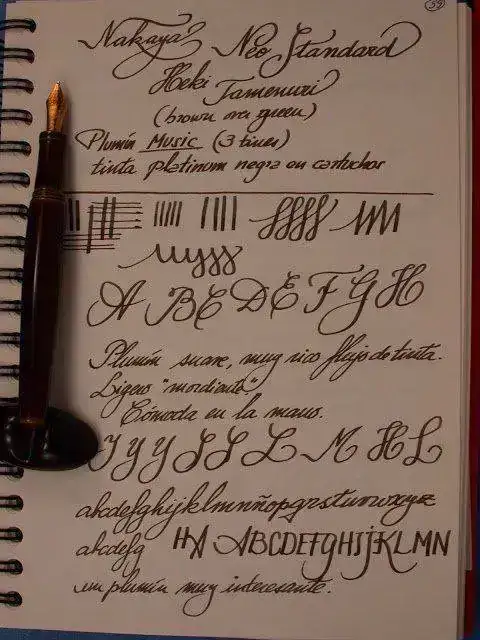 59
Nakaya Neo Standard
Heki Tamenuri
(brown over green)
Plumín Music (3 tines)
tinta platinum negra en cartuchos
A B C D E F G H
Plumín suave, muy rico flujo de tinta.
Ligero "mordiente".
Cómoda en la mano.
Y Y S S L M H L
abcdefghijklmnñopqrstuvwxyz
abcdefg HA ABCDEFGHIJKLMN
un plumín muy interesante.